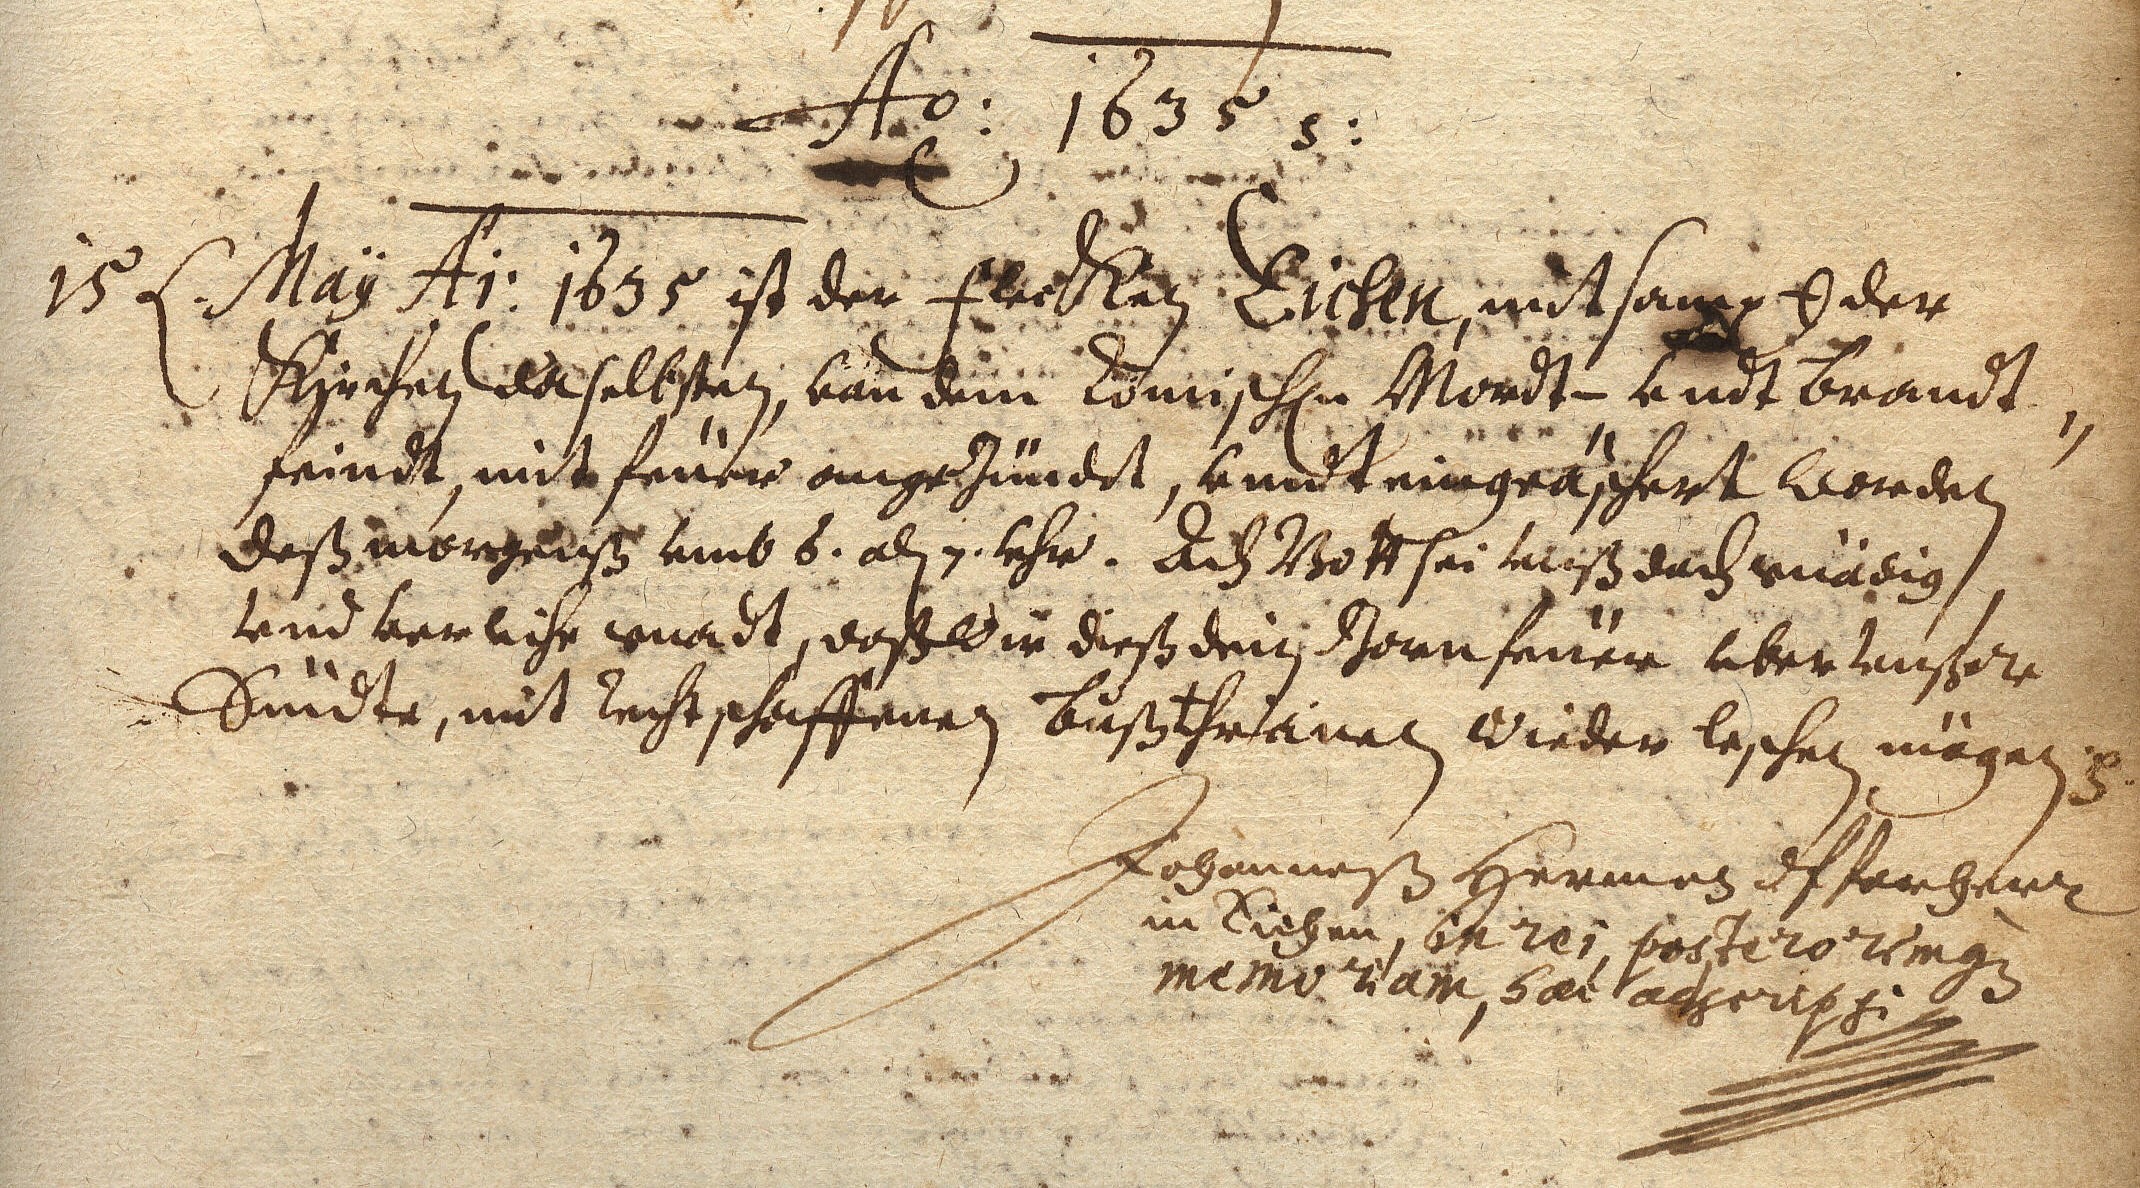 Ao: 1635 s:
15 May Ai: 1635 ist der fleckhen Eichen, mitsampt der
Kirchen daselbsten, von dem Römischen Mordt- vndt brandt
feindt, mit feüer angezündet, vndt eingeäschert worden
deß morgenß vmb 6. als 7. vhr. Ach Gott sei vnß doch gnädig
vnd verleihe gnadt, daß wir dieß dein Zornfeüer vber vnßere
Sündte, mit rechtschaffenen bußthränen wieder leschen mögen
Johanneß Hermen Pfarherr
in Eichen, in rei, posterorumq
memoriam, haec adscripsi